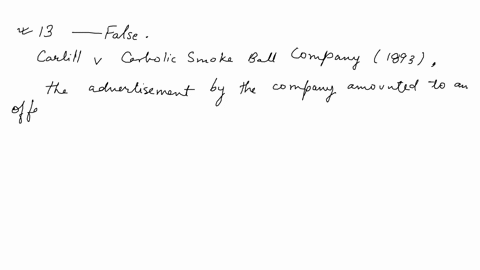 * 13 — False.
Carlill v Carbolic Smoke Ball Company (1893),
the advertisement by the company amounted to an
offe